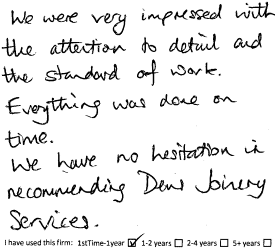 We were very impressed with
the attention to detail and
the standard of work.
Everything was done on
time.
We have no hesitation in
recommending Dens Joinery
Services.
I have used this firm: 1stTime-1year ☑ 1-2 years ☐ 2-4 years ☐ 5+ years ☐